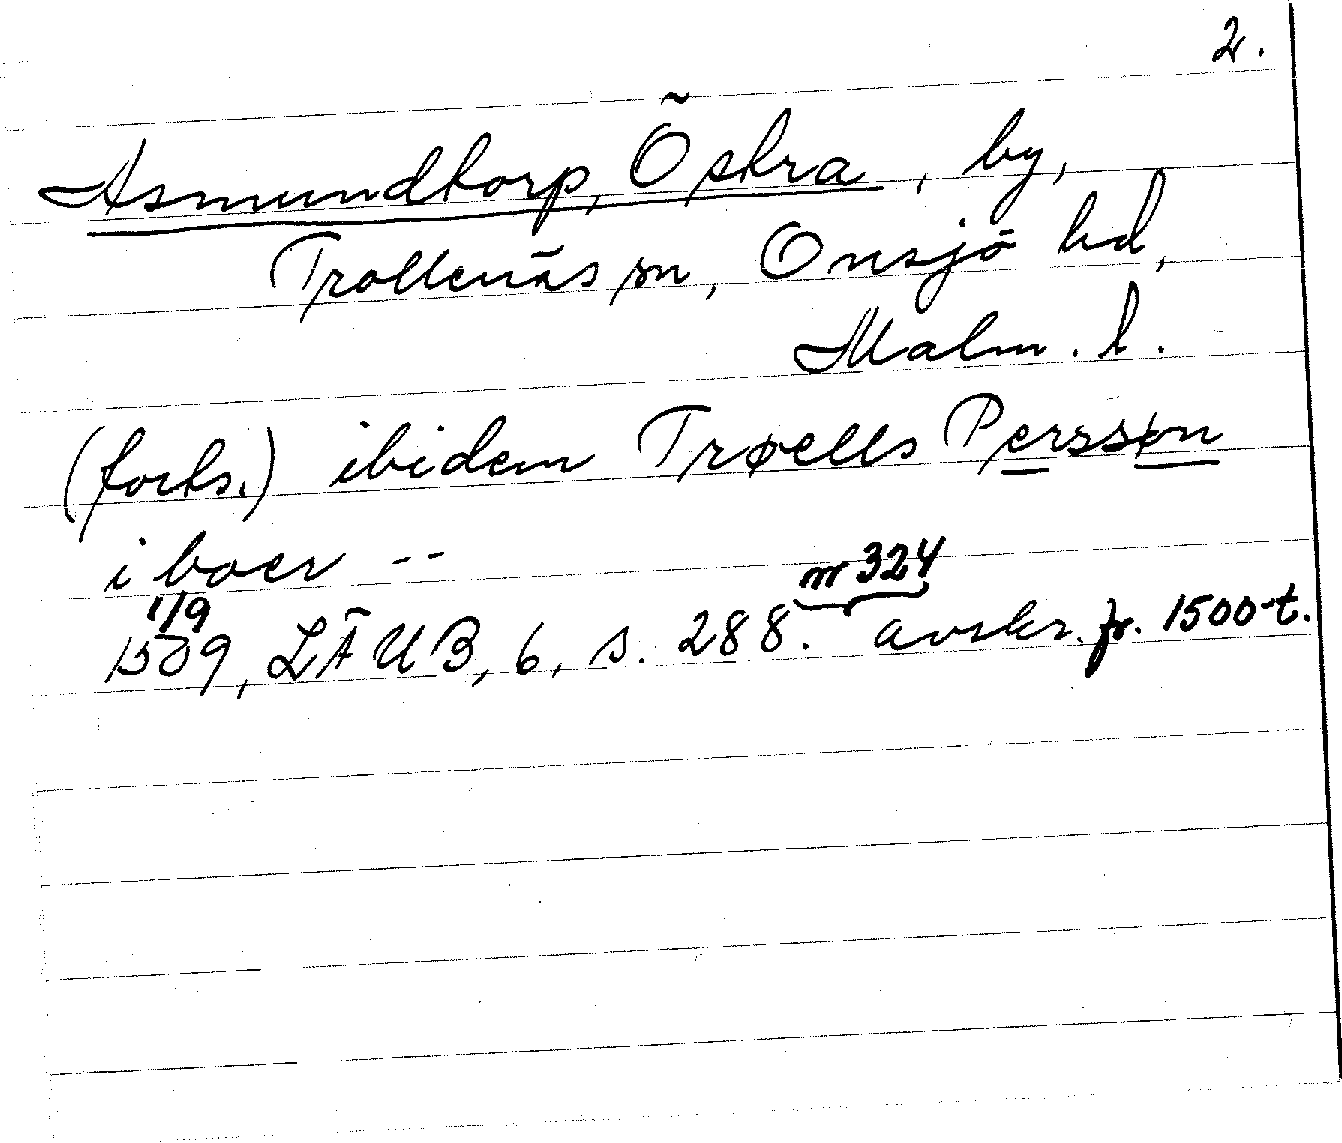 2.
Asmundtorp, Östra, by,
Trollenäs sn, Onsjö hd,
Malm. l.
(forts.) ibidem Trøells Perssøn
i boer --
1/9
nr 324
1509, LÄUB, 6, s. 288. avskr. fr. 1500-t.